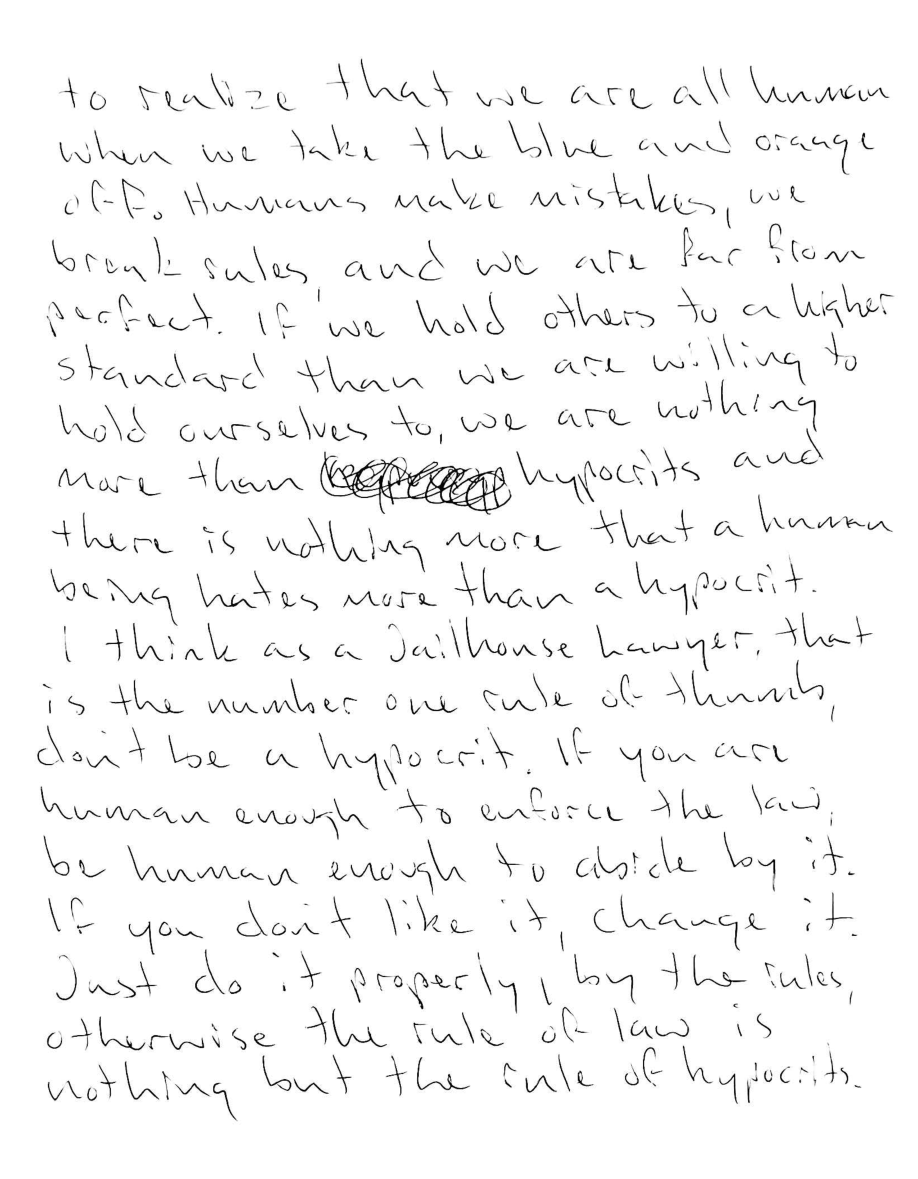 to realize that we are all human
when we take the blue and orange
off. Humans make mistakes, we
break rules, and we are far from
perfect. If we hold others to a higher
standard than we are willing to
hold ourselves to, we are nothing
more than hypocrits and
there is nothing more that a human
being hates more than a hypocrit.
I think as a Jailhouse Lawyer, that
is the number one rule of thumb,
don't be a hypocrit. If you are
human enough to enforce the law,
be human enough to abide by it.
If you don't like it, change it.
Just do it properly, by the rules,
otherwise the rule of law is
nothing but the rule of hypocrits.